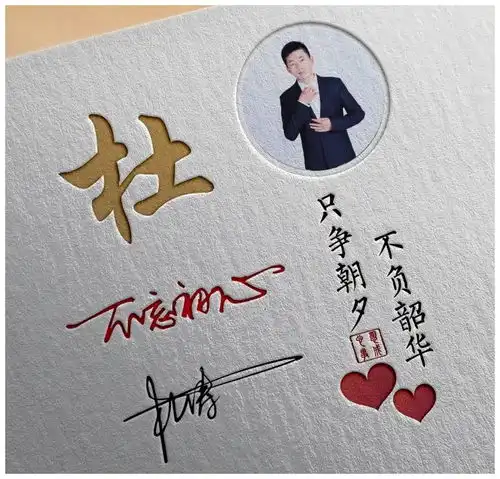 杜
不忘初心
只争朝夕
不负韶华